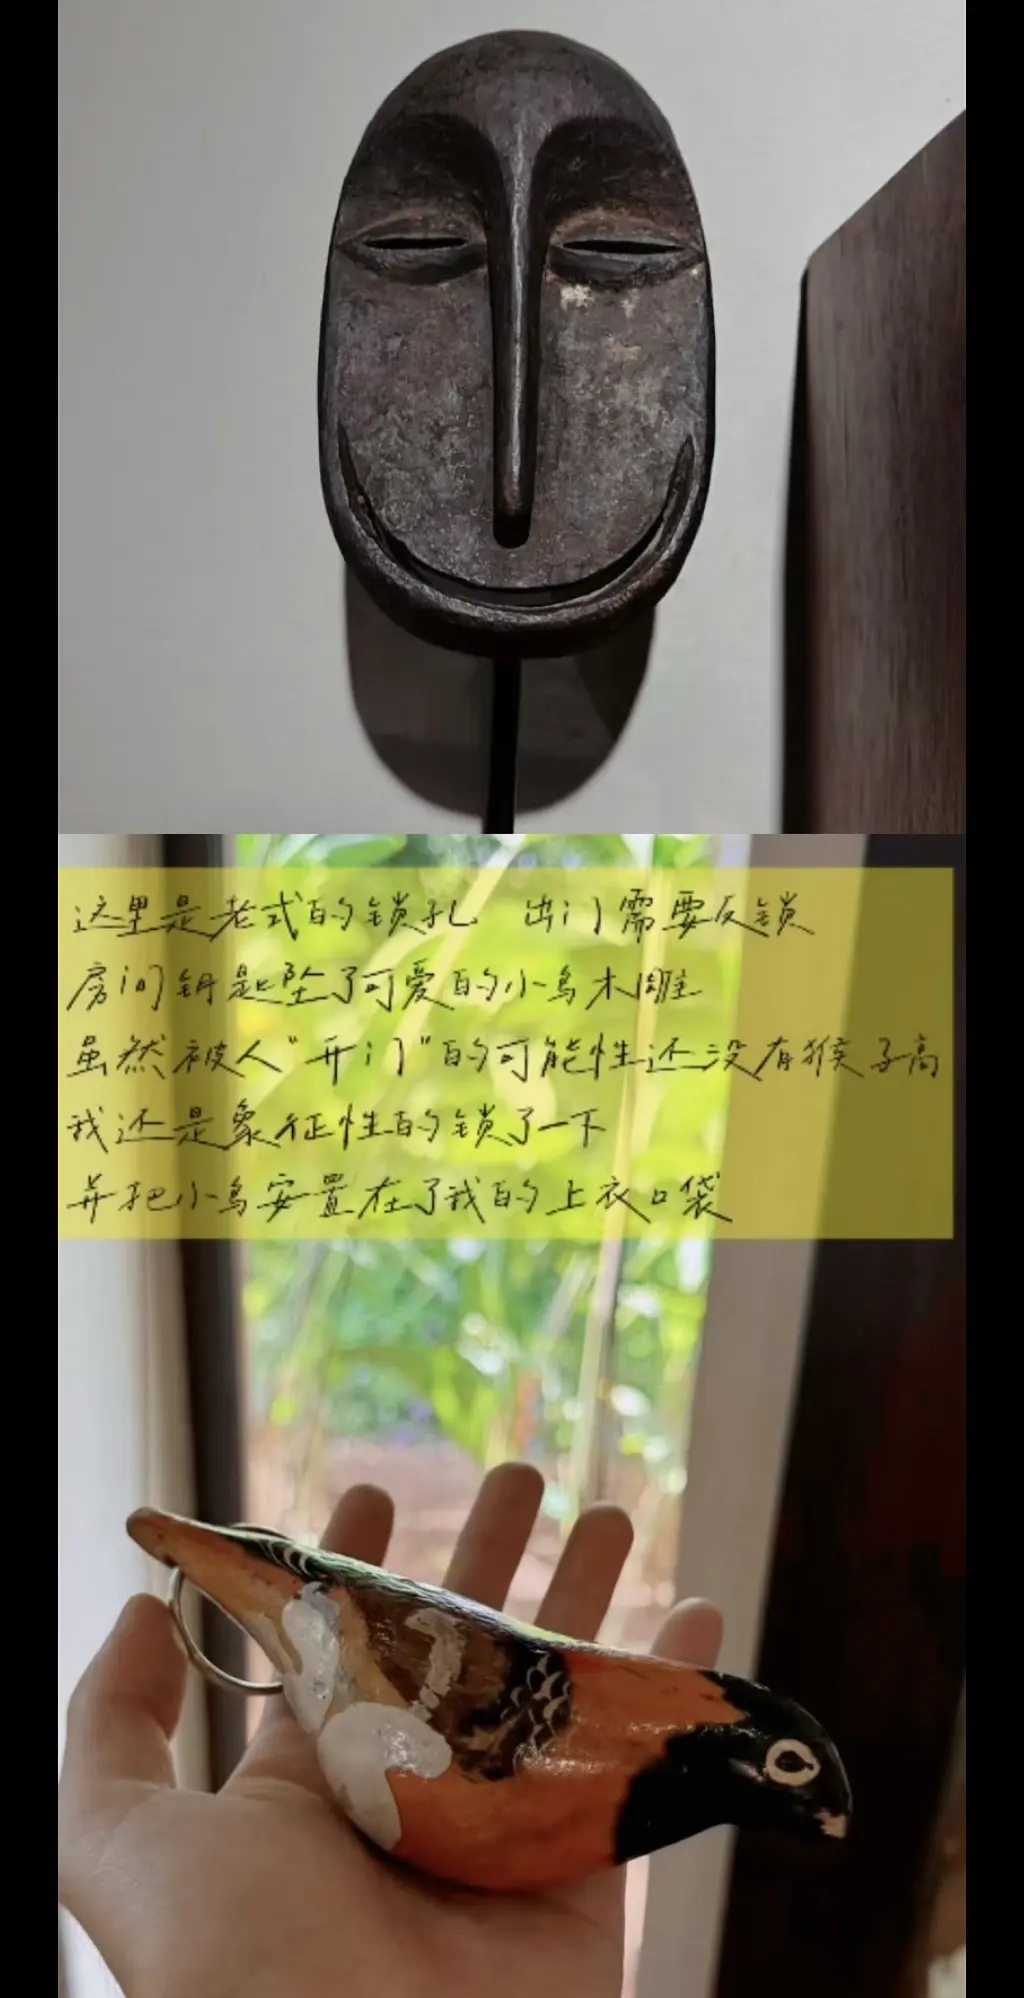 这里是老式的锁孔 出门需要反锁
房间钥匙坠了可爱的小鸟木雕
虽然被人“开门”的可能性还没有猴子高
我还是象征性的锁了一下
并把小鸟安置在了我的上衣口袋